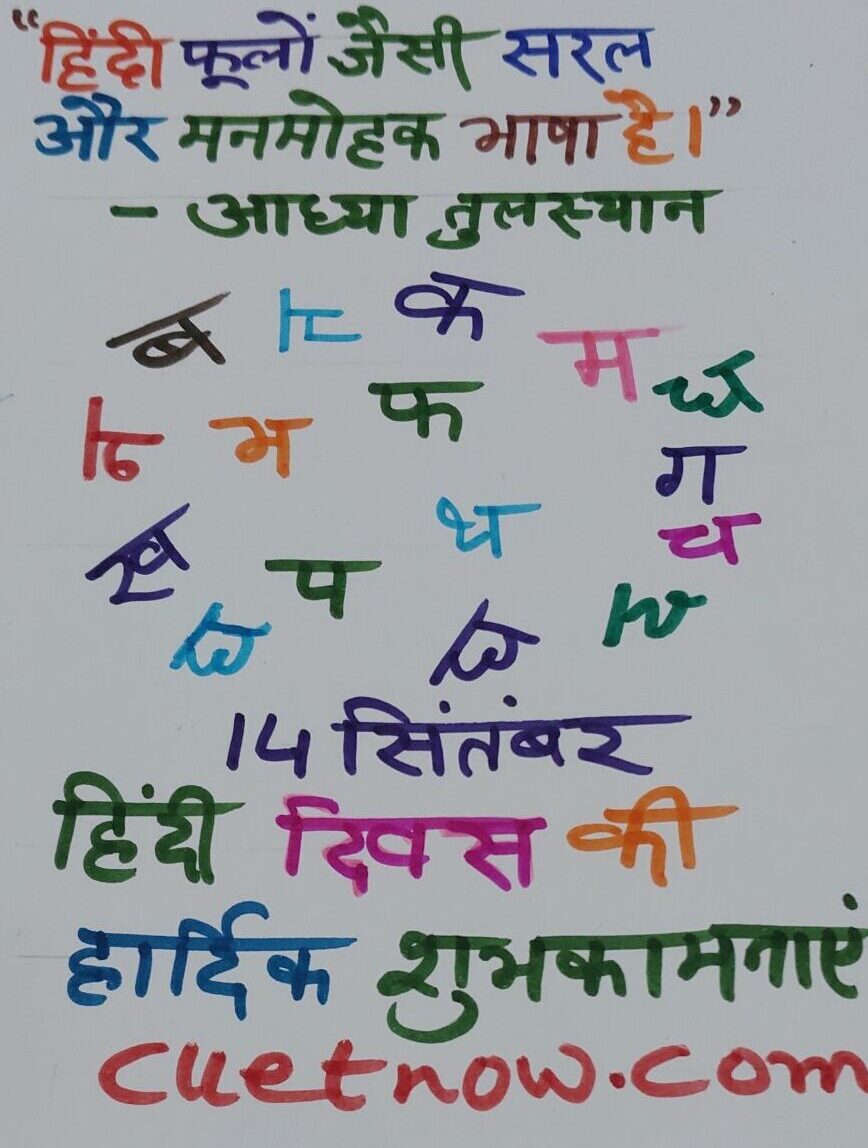 "हिंदी फूलों जैसी सरल
और मनमोहक भाषा है।"
- आध्या तुलस्यान
ब न क म
छ
त भ फ ग
ख थ च
प
घ
14 सिंतंबर
हिंदी दिवस की
हार्दिक शुभकामनाएं
cuetnow.com